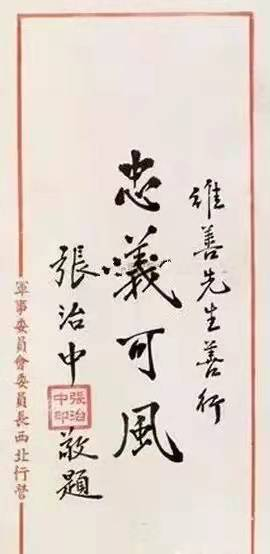 維善先生善行
忠義可風
張治中敬題
張治
中印
軍事委員會委員長西北行營